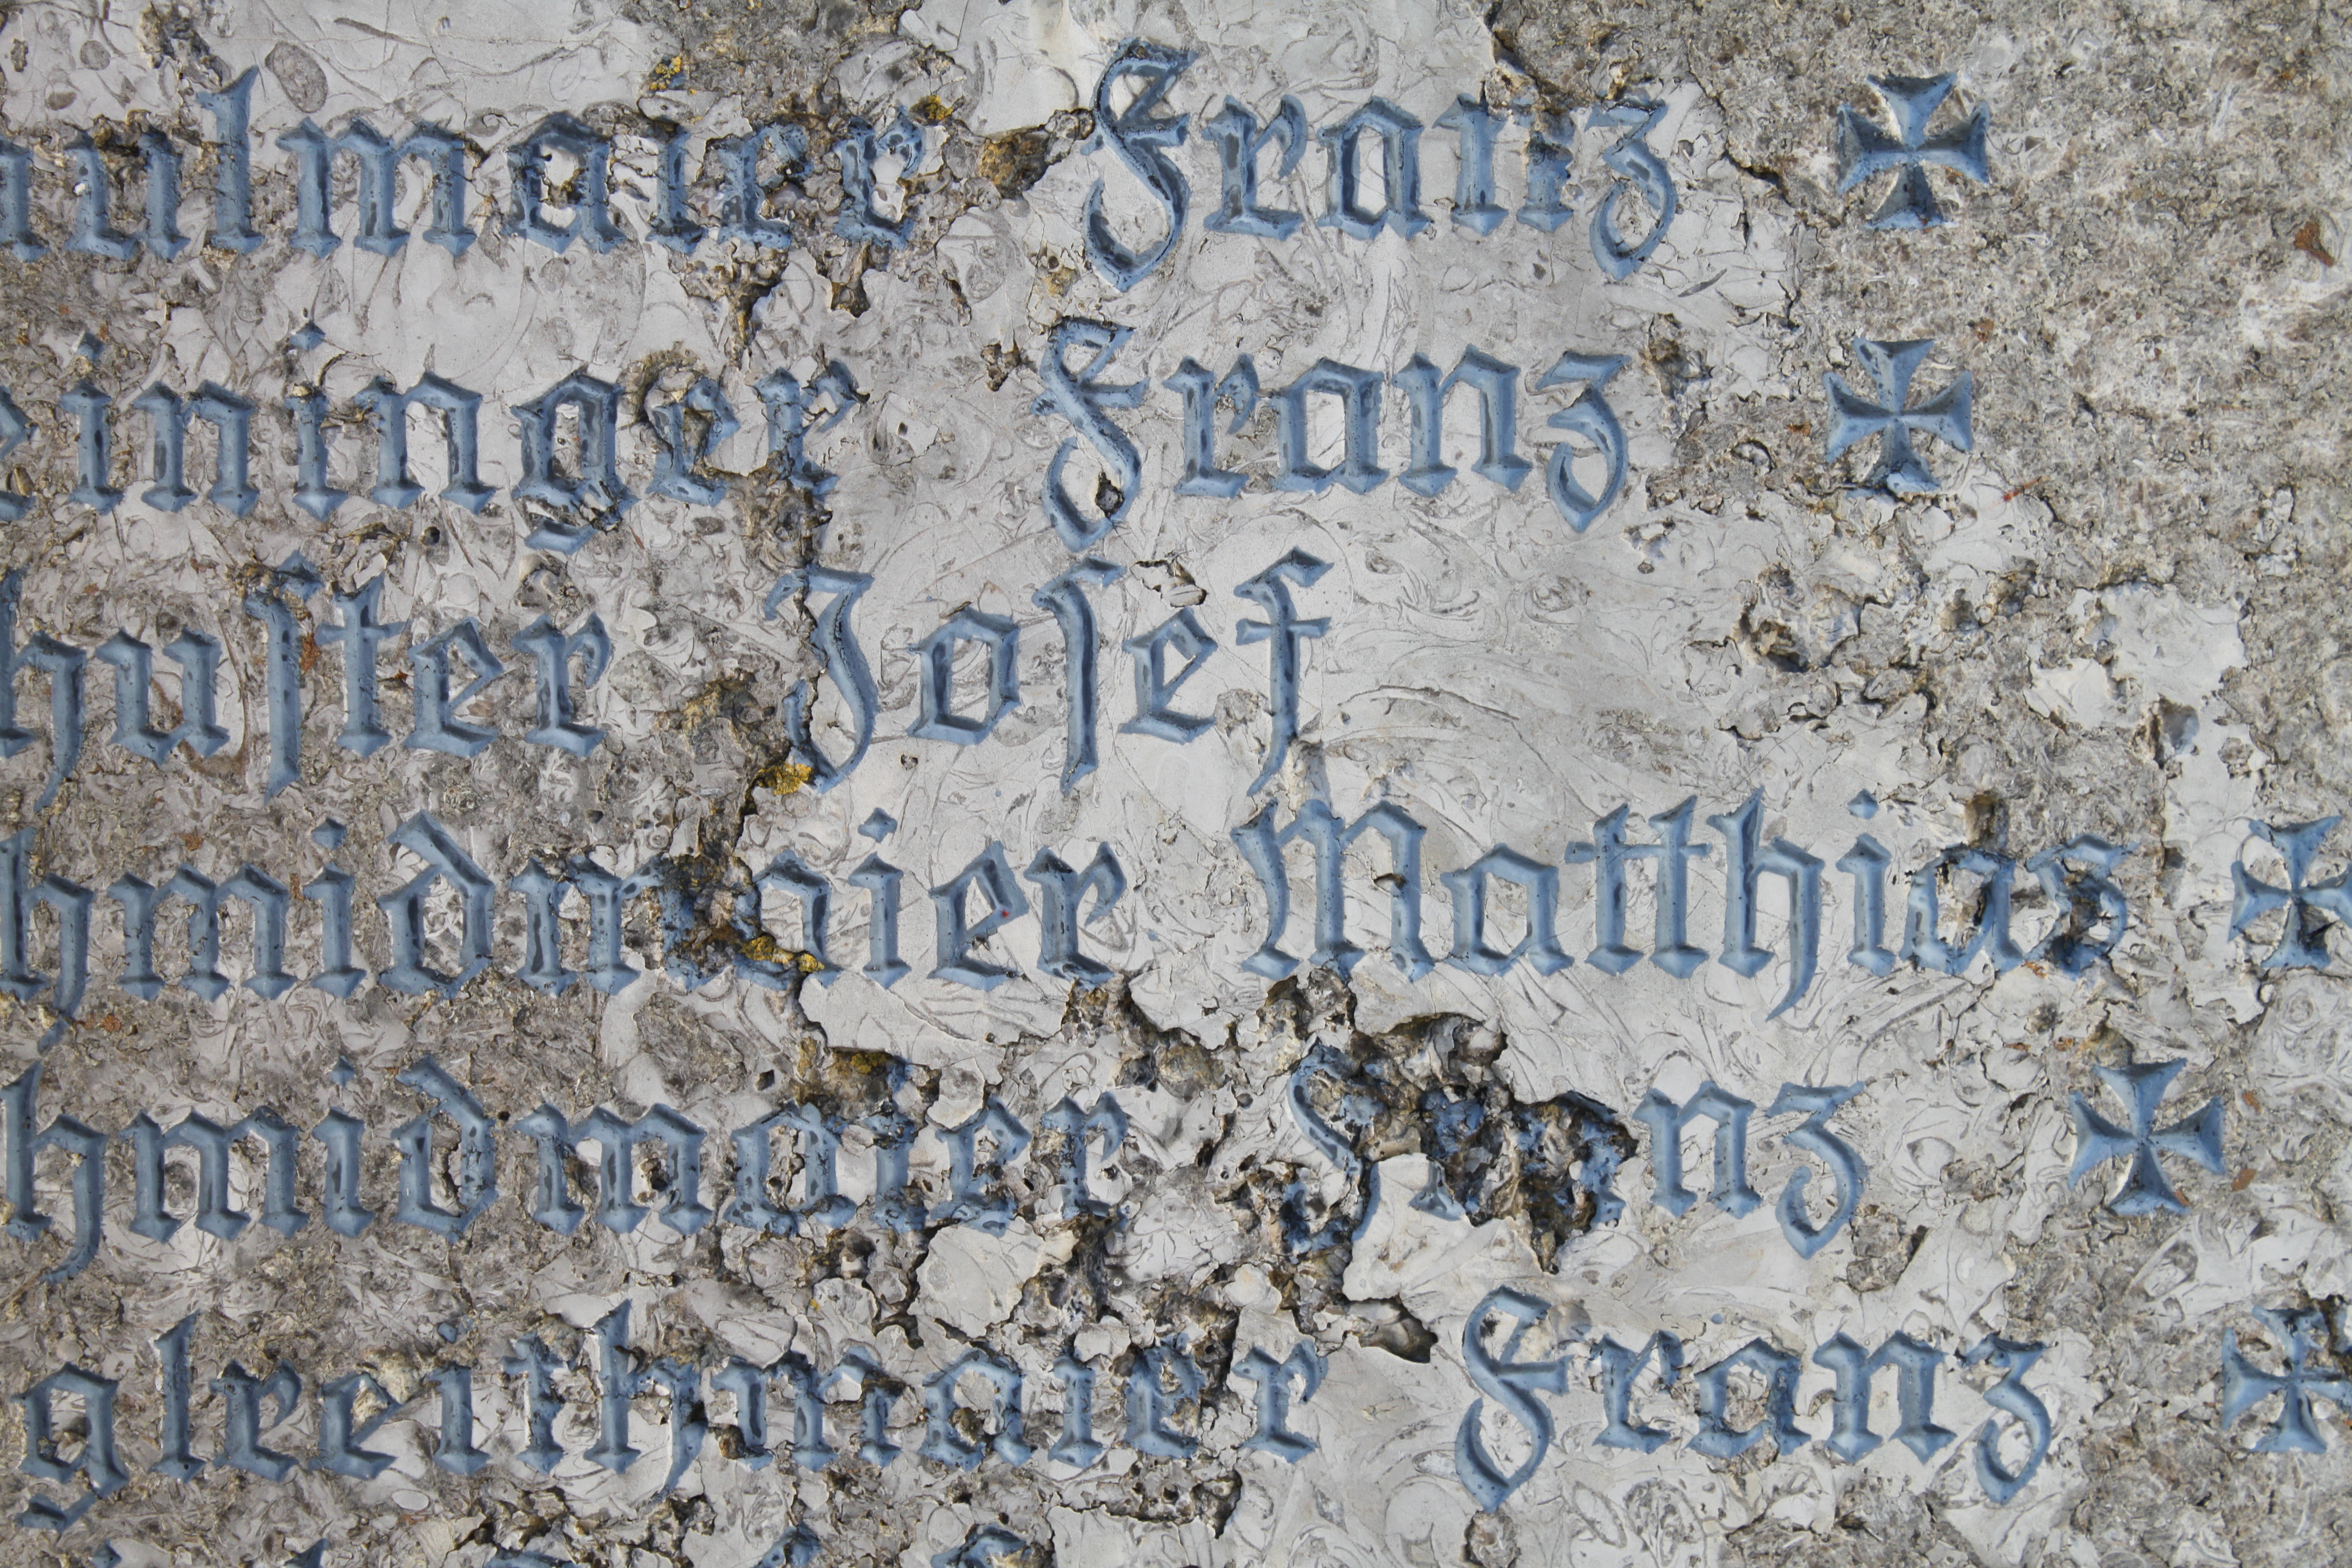 ulmaier Franz
eininger Franz
huſter Joſef
hmidmaier Matthias
hmidmaier Franz
gleithmaier Franz